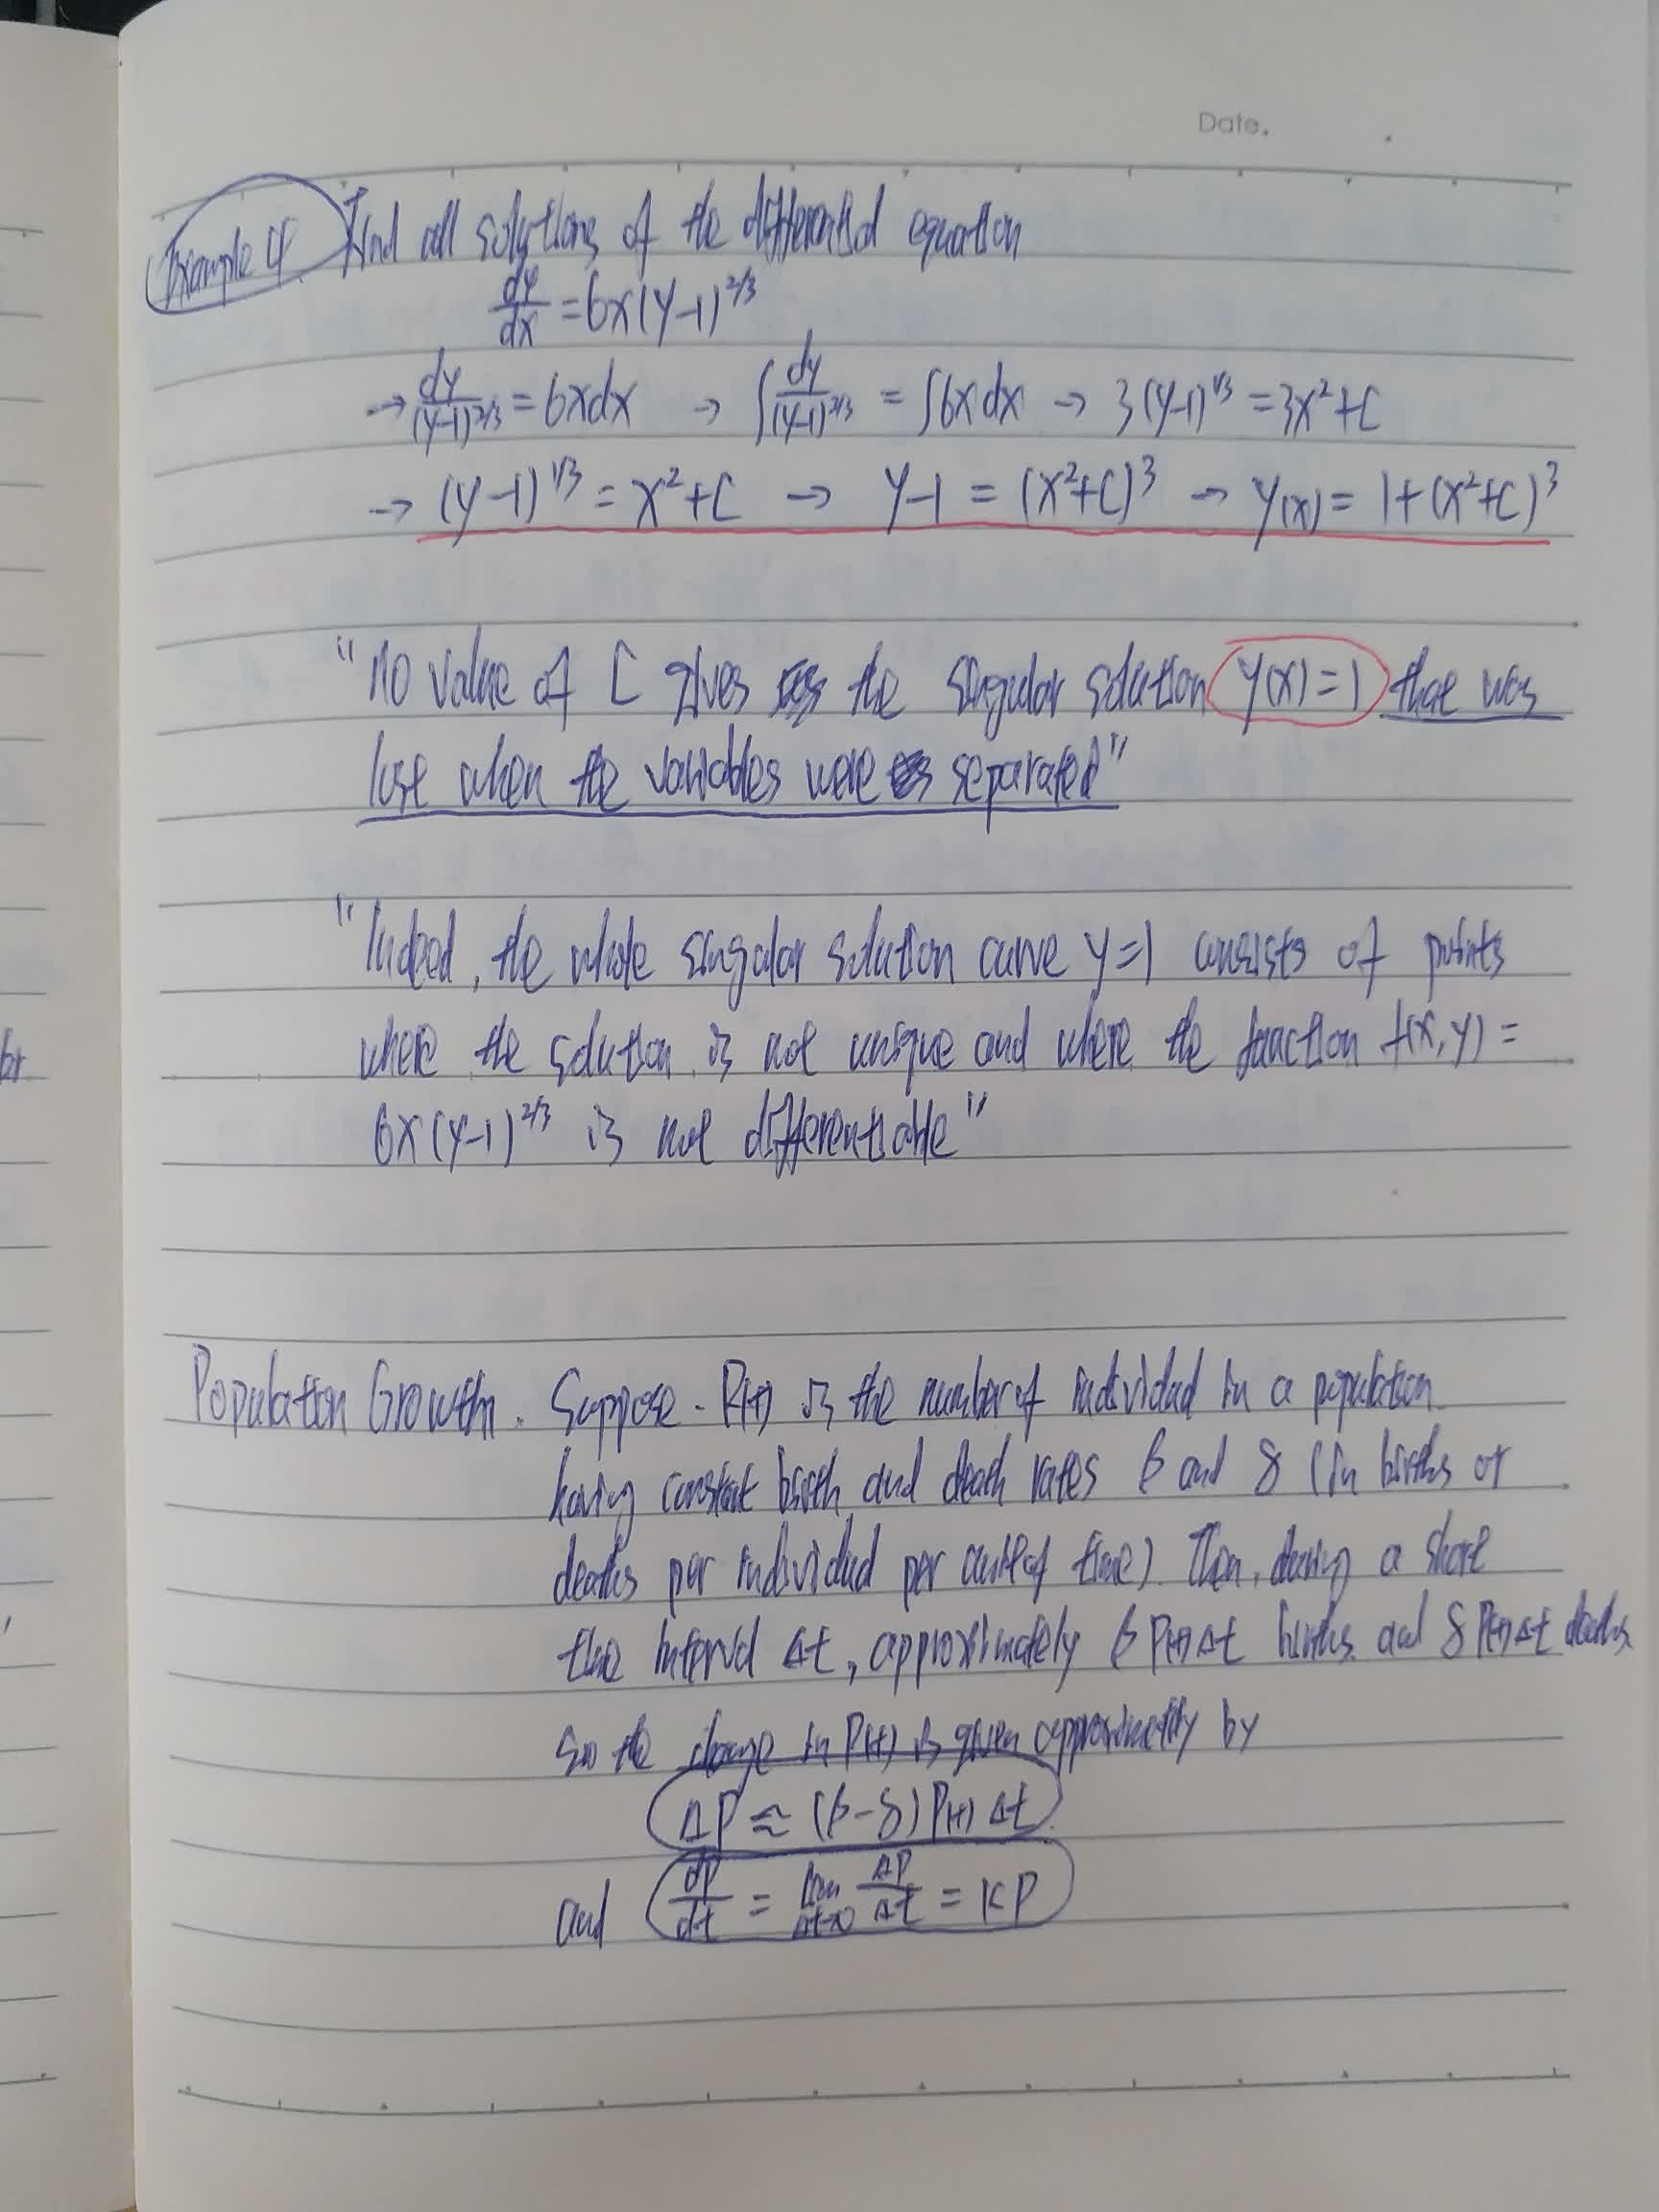 Date.
Example 4 Find all solutions of the differential equation
dy/dx = 6x(y-1)^2/3
→ dy/(y-1)^2/3 = 6xdx → ∫ dy/(y-1)^2/3 = ∫6xdx → 3(y-1)^1/3 = 3x²+C
→ (y-1)^1/3 = x²+C → y-1 = (x²+C)³ → y(x) = 1+(x²+C)³
"No value of C gives the singular solution y(x)=1 that was
lost when the variables were separated"
"Indeed, the whole singular solution curve y=1 consists of points
where the solution is not unique and where the function f(x,y) =
6x(y-1)^2/3 is not differentiable"
Population Growth. Suppose - P(t) is the number of individual in a population
having constant birth and death rates β and δ (in births or
deaths per individual per unit of time). Then, during a short
time interval Δt, approximately β P(t) Δt births and δ P(t) Δt deaths
so the change in P(t) is given approximately by
ΔP ≈ (β-δ) P(t) Δt
and dP/dt = lim Δt→0 ΔP/Δt = KP